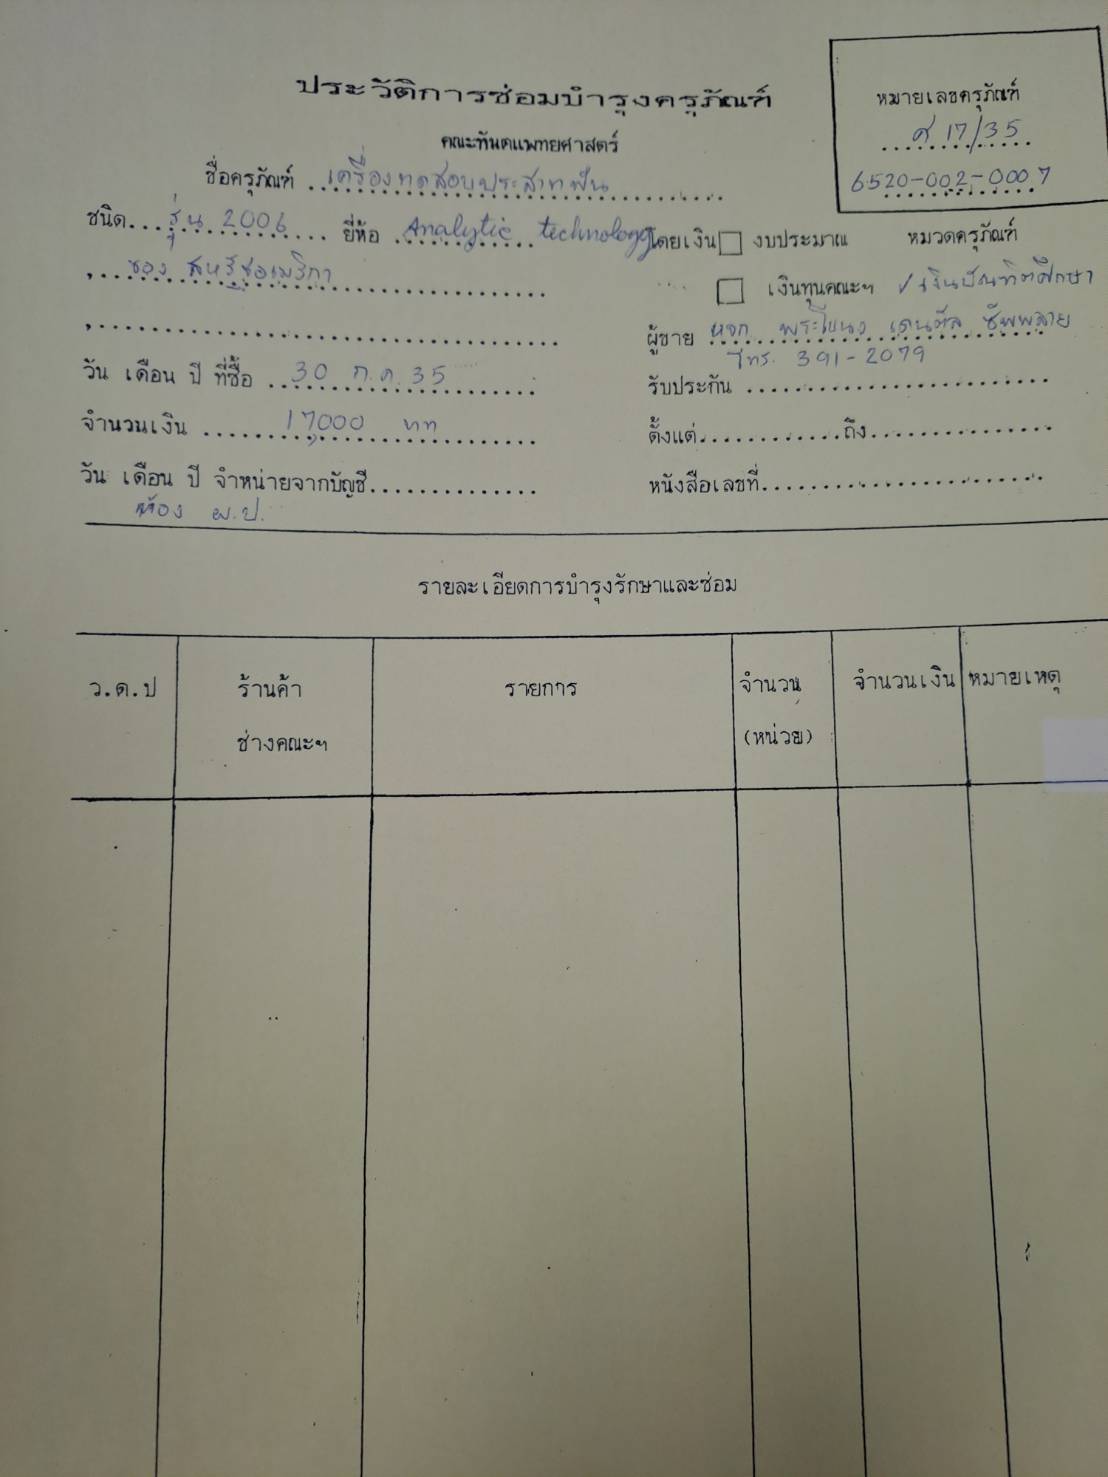 ประวัติการซ่อมบำรุงครุภัณฑ์
หมายเลขครุภัณฑ์
ศ 17/35
6520-002-0007
คณะทันตแพทยศาสตร์
ชื่อครุภัณฑ์ เครื่องทดสอบประสาทฟัน
ชนิด รุ่น 2006 ยี่ห้อ Analytic technology โดยเงิน งบประมาณ หมวดครุภัณฑ์
ของ สหรัฐอเมริกา
เงินทุนคณะฯ / เงินบัณฑิตศึกษา
ผู้ขาย หจก. พระโขนง เดนตัล ซัพพลาย
โทร. 391-2079
วัน เดือน ปี ที่ซื้อ 30 ก.ค. 35 รับประกัน
จำนวนเงิน 17,000 บาท ตั้งแต่ ถึง
วัน เดือน ปี จำหน่ายจากบัญชี หนังสือเลขที่
ห้อง ผ.ป.
รายละเอียดการบำรุงรักษาและซ่อม
ว.ด.ป ร้านค้า รายการ จำนวน จำนวนเงิน หมายเหตุ
ช่างคณะฯ (หน่วย)